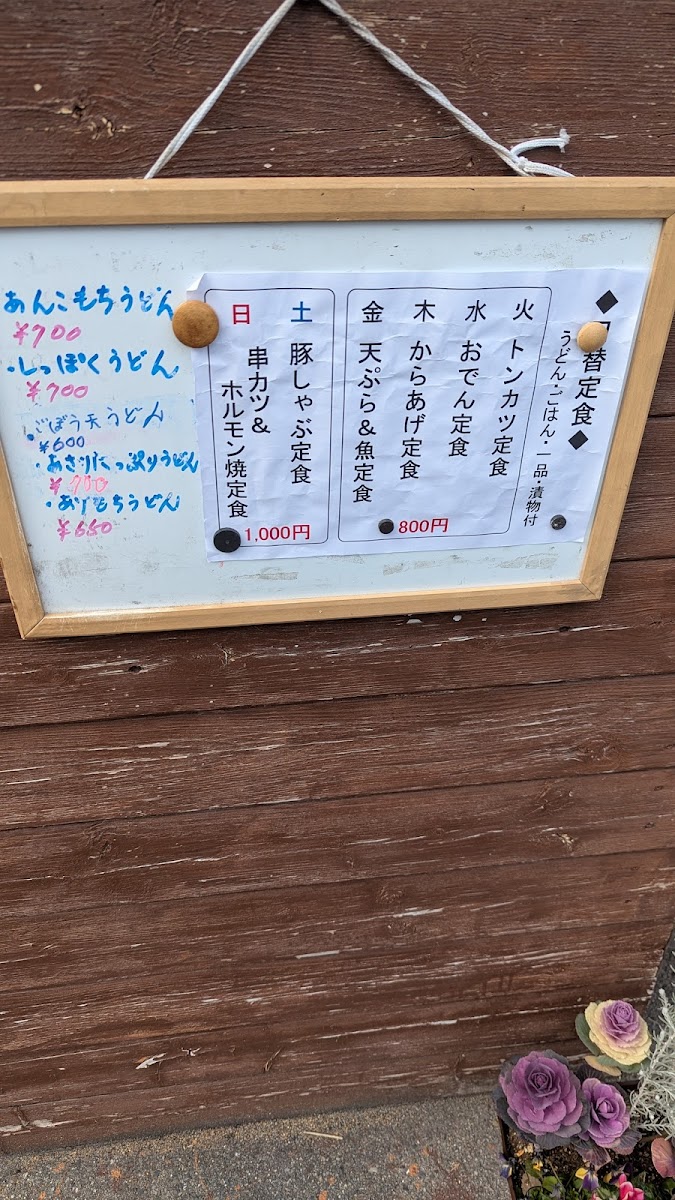 あんこもちうどん
¥700
・しっぽくうどん
¥700
・ごぼう天うどん
¥600
・あさりたっぷりうどん
¥700
・あげもちうどん
¥650
◆替定食◆
うどん・ごはん・一品・漬物付
火 トンカツ定食
水 おでん定食
木 からあげ定食
金 天ぷら&魚定食
800円
土 豚しゃぶ定食
日 串カツ&
ホルモン焼定食
1,000円